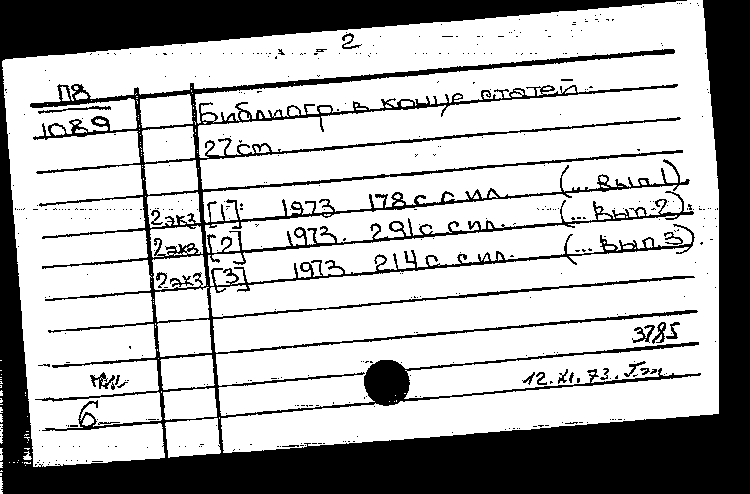 - 2
П8
1089
Библиогр. в конце статей.
27 см.
2 экз [1]. 1973. 178 с. с ил. (... Вып. 1).
2 экз [2] 1973. 291 с. с ил. (... Вып. 2).
2 экз [3] 1973. 214 с. с ил. (... Вып. 3).
3785
12.XI.73.
б